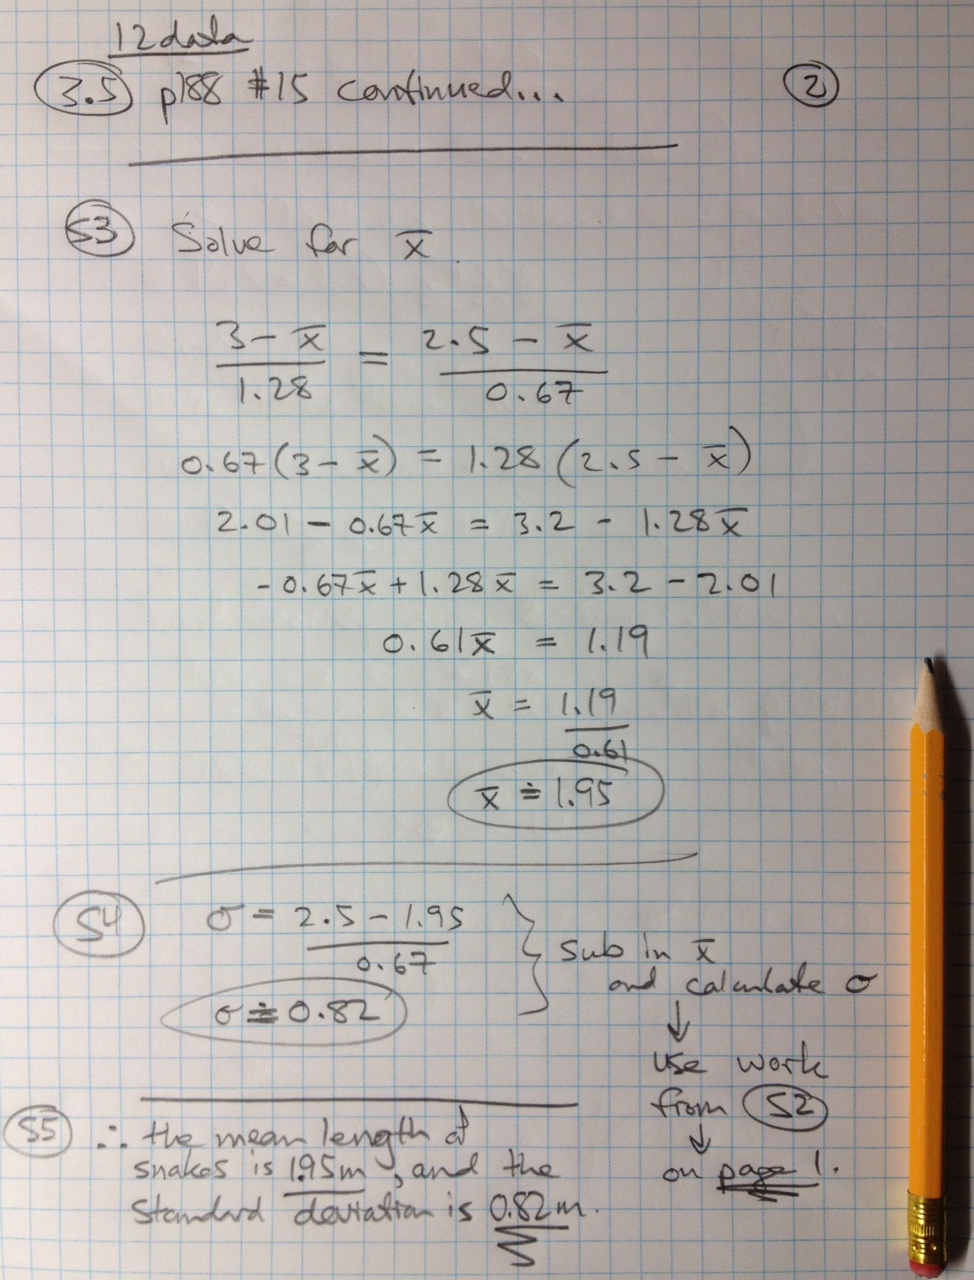 12 data
3.5 p188 #15 continued...
2
S3 Solve for x̄.
3 - x̄ / 1.28 = 2.5 - x̄ / 0.67
0.67(3 - x̄) = 1.28(2.5 - x̄)
2.01 - 0.67x̄ = 3.2 - 1.28x̄
-0.67x̄ + 1.28x̄ = 3.2 - 2.01
0.61x̄ = 1.19
x̄ = 1.19 / 0.61
x̄ ≐ 1.95
S4 σ = 2.5 - 1.95 / 0.67
σ ≐ 0.82
} sub in x̄
and calculate σ
↓
use work
from S2
↓
on page 1.
S5 ∴ the mean length of
snakes is 1.95m, and the
standard deviation is 0.82m.